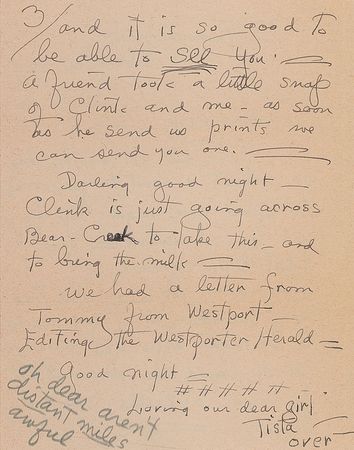 3/ and it is so good to
be able to see you.
a friend took a little snap
of Clink and me - as soon
as he send us prints we
can send you one.
Darling good night -
Clink is just going across
Bear-Creek to take this - and
to bring the milk
we had a letter from
Tommy from Westport
Editing the Westporter Herald -
Good night -
# # # # #
Loving our dear girl
Tista
over -
oh dear aren't
distant miles
awful